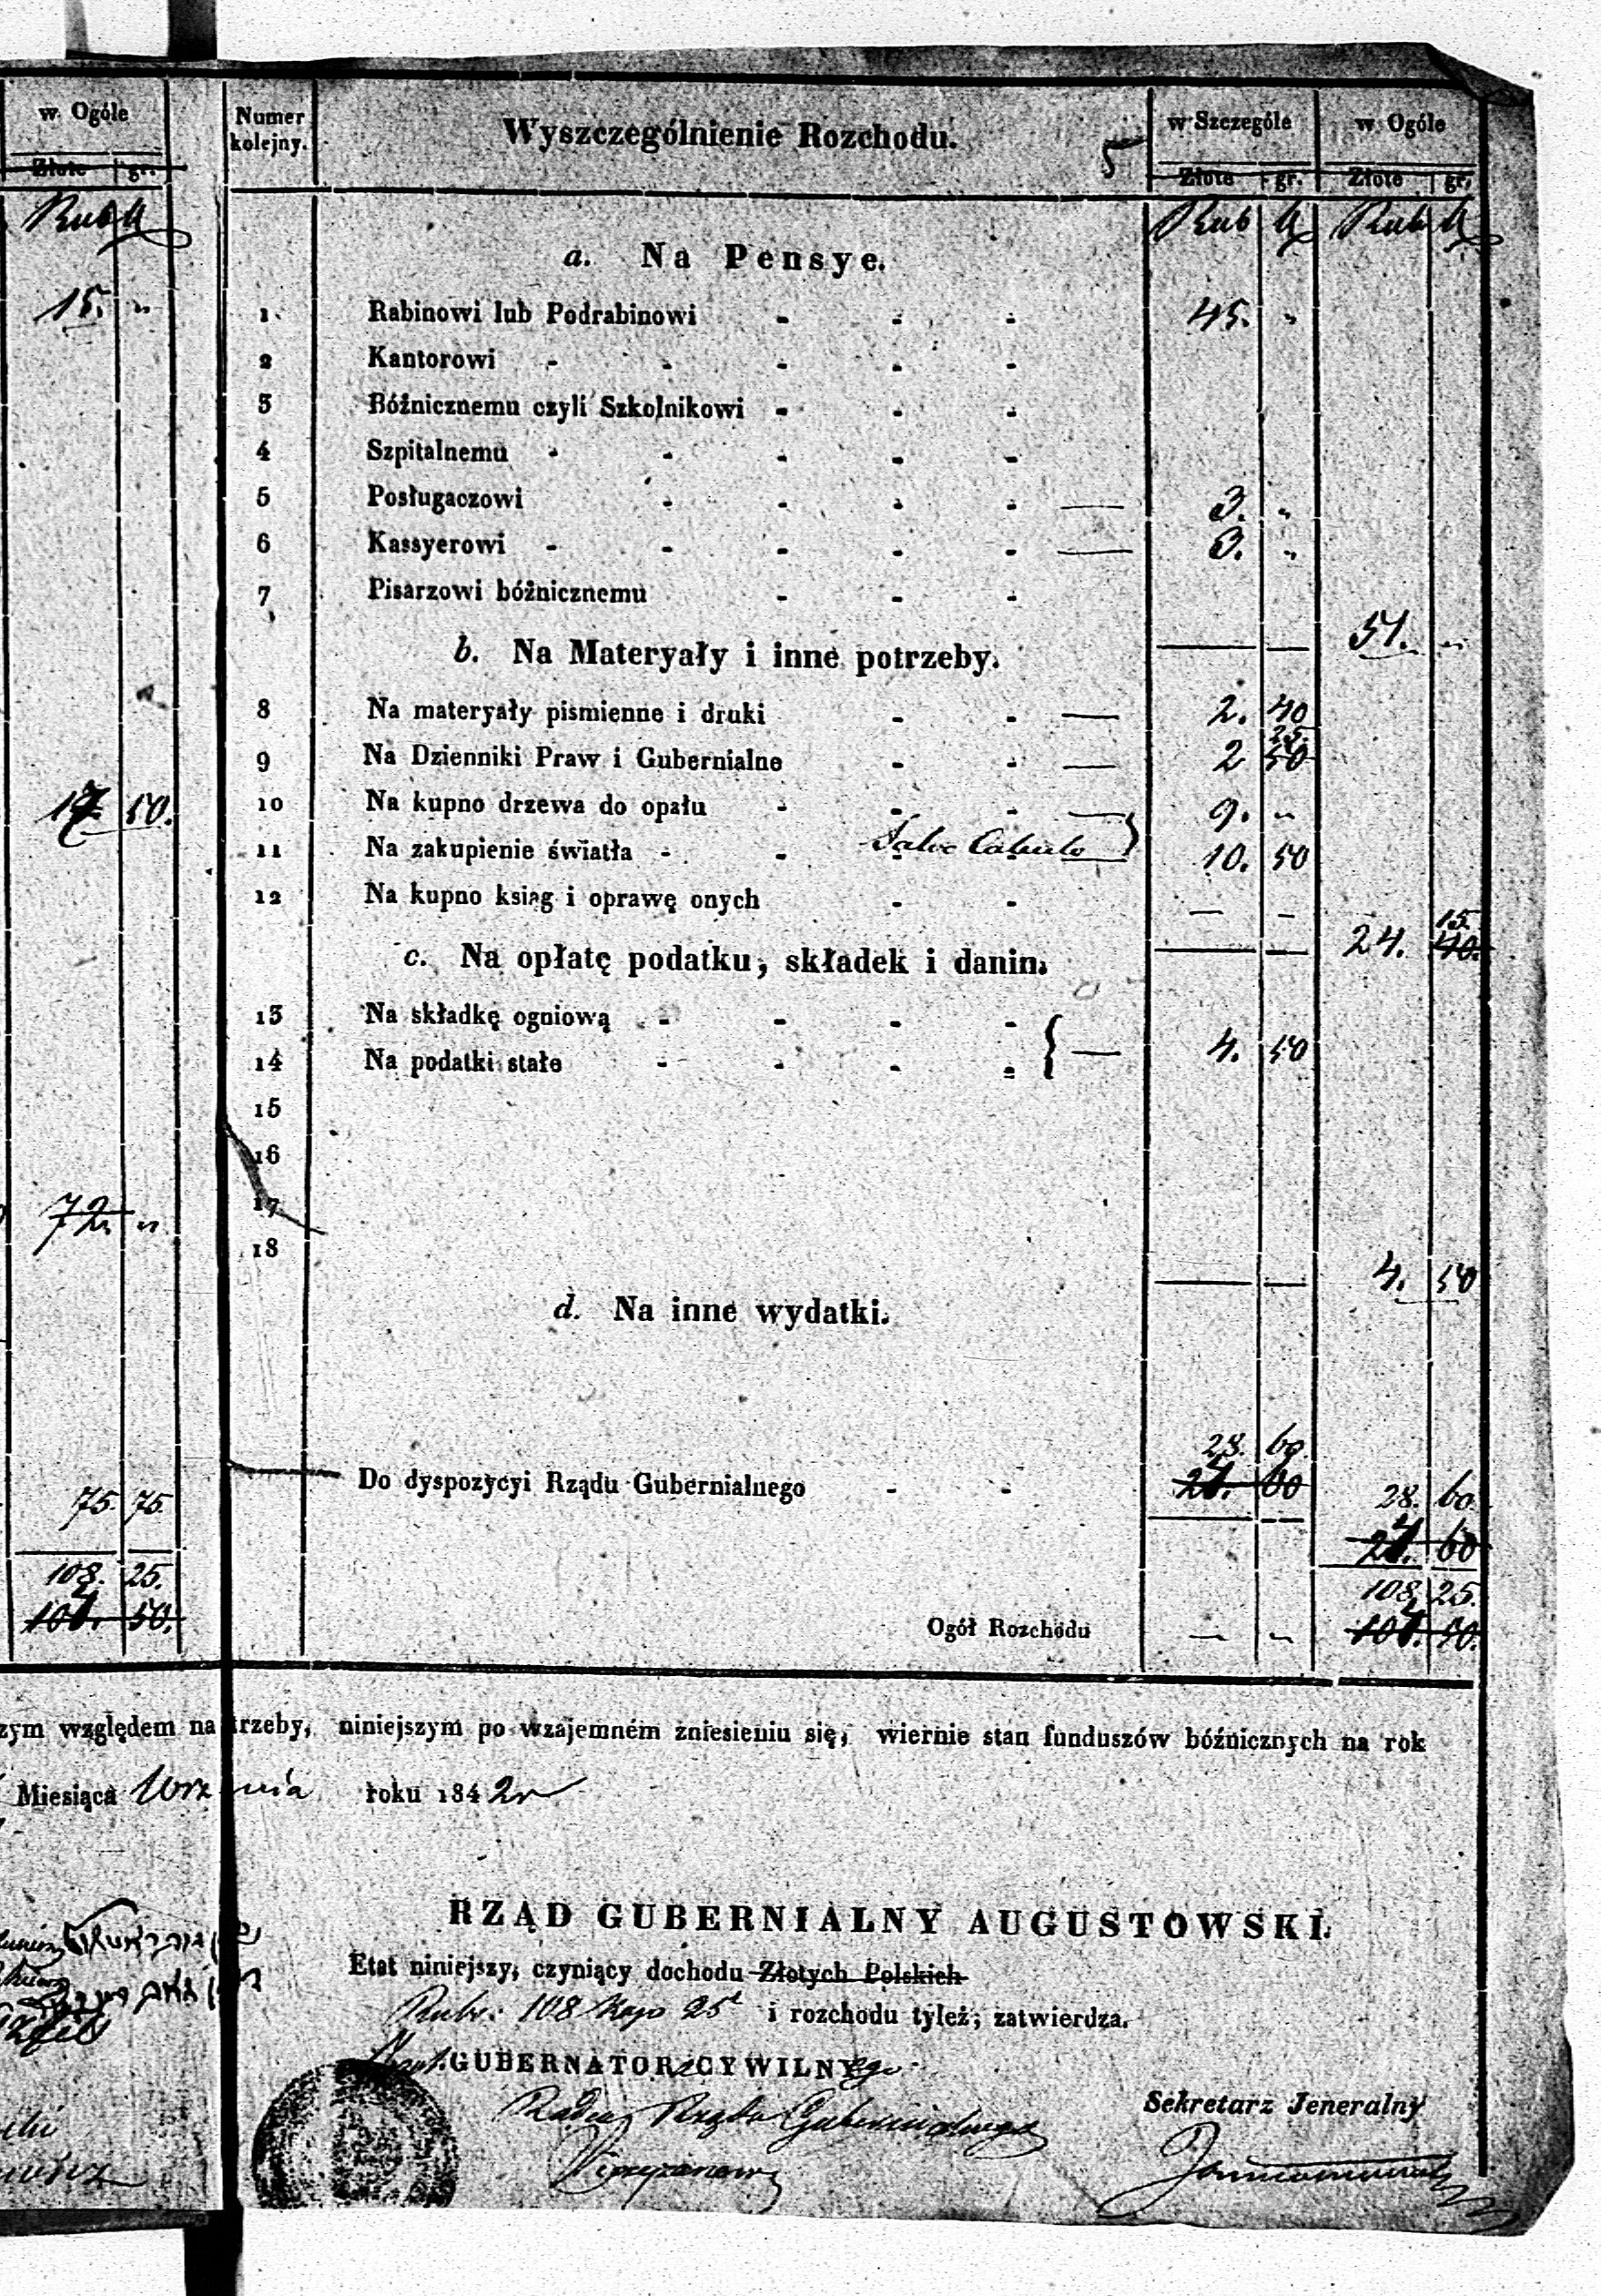 w Ogóle
Złote gr.
15. "
17 50.
72. "
75 75
108. 25.
50.
Numer kolejny. Wyszczególnienie Rozchodu. 5 w Szczególe w Ogóle
Złote gr. Złote gr.
Rub Rub
a. Na Pensye.
1 Rabinowi lub Podrabinowi - - - 45. "
2 Kantorowi - - - - -
3 Bóżnicznemu czyli Szkolnikowi - - -
4 Szpitalnemu - - - - -
5 Posługaczowi - - - - — 3. "
6 Kassyerowi - - - - - — 3. "
7 Pisarzowi bóżnicznemu - - -
— — 51. "
b. Na Materyały i inne potrzeby.
8 Na materyały piśmienne i druki - - — 2. 40
25.
9 Na Dzienniki Praw i Gubernialne - - — 2 50
10 Na kupno drzewa do opału - - - — 9. "
11 Na zakupienie światła - - - - Salvo Calculo } 10. 50
12 Na kupno ksiąg i oprawę onych - - — —
15.
— — 24. 40.
c. Na opłatę podatku, składek i danin.
13 Na składkę ogniową - - - -
14 Na podatki stałe - - - - { — 4. 50
15
16
17
18
— — 4. 50
d. Na inne wydatki.
28. 60
Do dyspozycyi Rządu Gubernialnego - - 60
28. 60
60
108. 25.
Ogół Rozchodu — " 50.
zym względem na trzeby, niniejszym po wzajemném zniesieniu się, wiernie stan funduszów bóżnicznych na rok
Miesiąca Września roku 1842r
RZĄD GUBERNIALNY AUGUSTOWSKI.
Etat niniejszy, czyniący dochodu Złotych Polskich
Rubr. 108 Kop 25 i rozchodu tyleż, zatwierdza.
GUBERNATORA CYWILNEgo
Radca Rządu Gubernialnego
Sekretarz Jeneralny